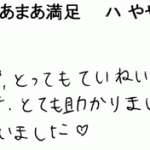 あまあ満足 ハ やや
、とってもていねい
、とても助かりまし
いました♡